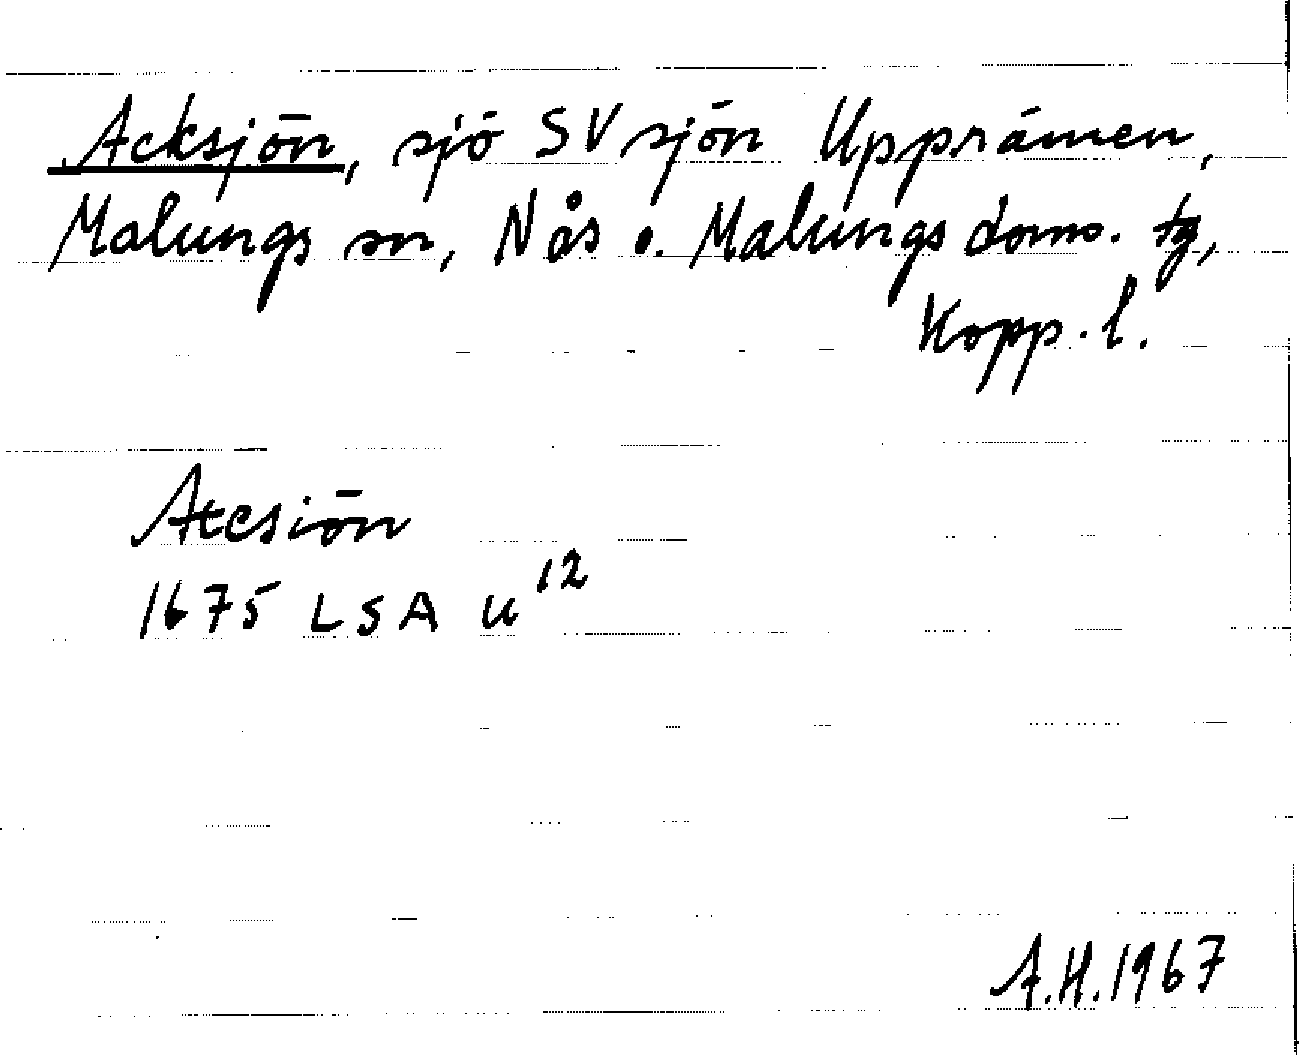 Acksjön, sjö SV sjön Upprämen,
Malungs sn, Nås o. Malungs doms. tg,
Kopp. l.
Atcsiön
1675 LSA U12
A.H. 1967